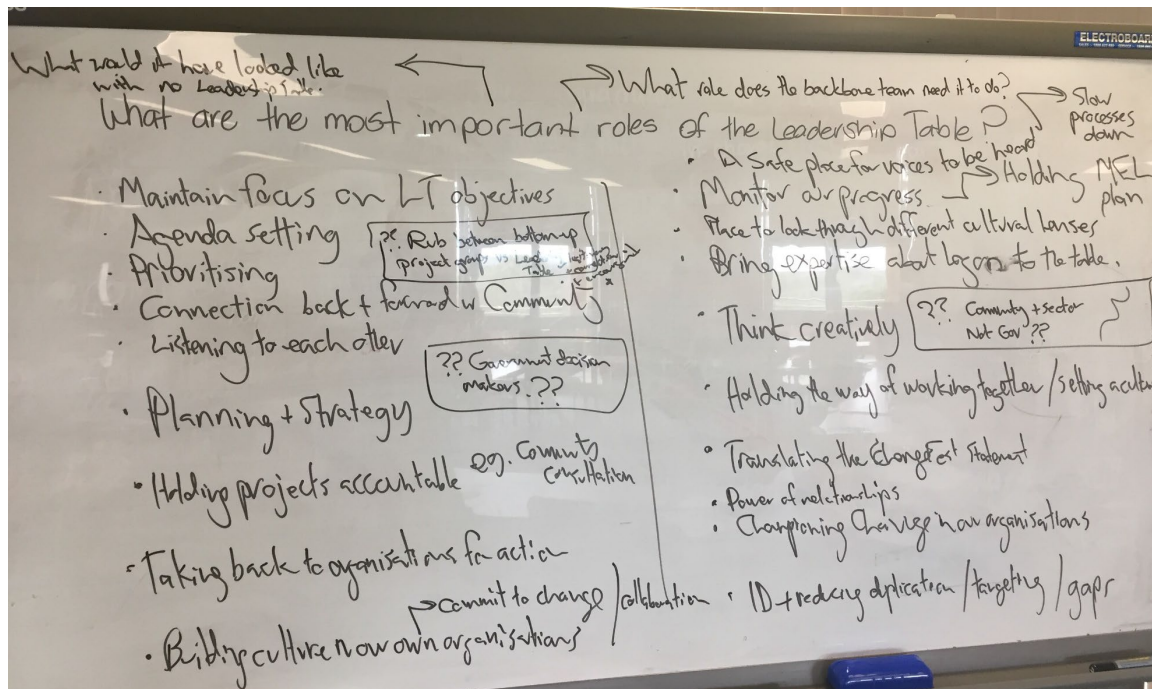 ELECTROBOARD
What would it have looked like
with no Leadership Table.
What role does the backbone team need it to do?
Slow
processes
down
What are the most important roles of the Leadership Table?
· Maintain focus on LT objectives
· Agenda setting
· Prioritising
?? Rub between bottom up
project groups vs Lead
Table
· Connection back + forward w Community
· Listening to each other
?? Government decision
makers. ??
· Planning + Strategy
· Holding projects accountable
eg. Community
consultation
· Taking back to organisations for action
commit to change / collaboration
· Building culture in our own organisations
· A safe place for voices to be heard
· Monitor our progress
Holding MEL
plan
· Place to look through different cultural lenses
· Bring expertise about Logan to the table.
· Think creatively
?? Community + sector
Not Gov ??
· Holding the way of working together / setting a cultu
· Translating the ChangeFest Statement
· Power of relationships
· Championing Change in our organisations
· ID + reducing duplication / targeting / gaps